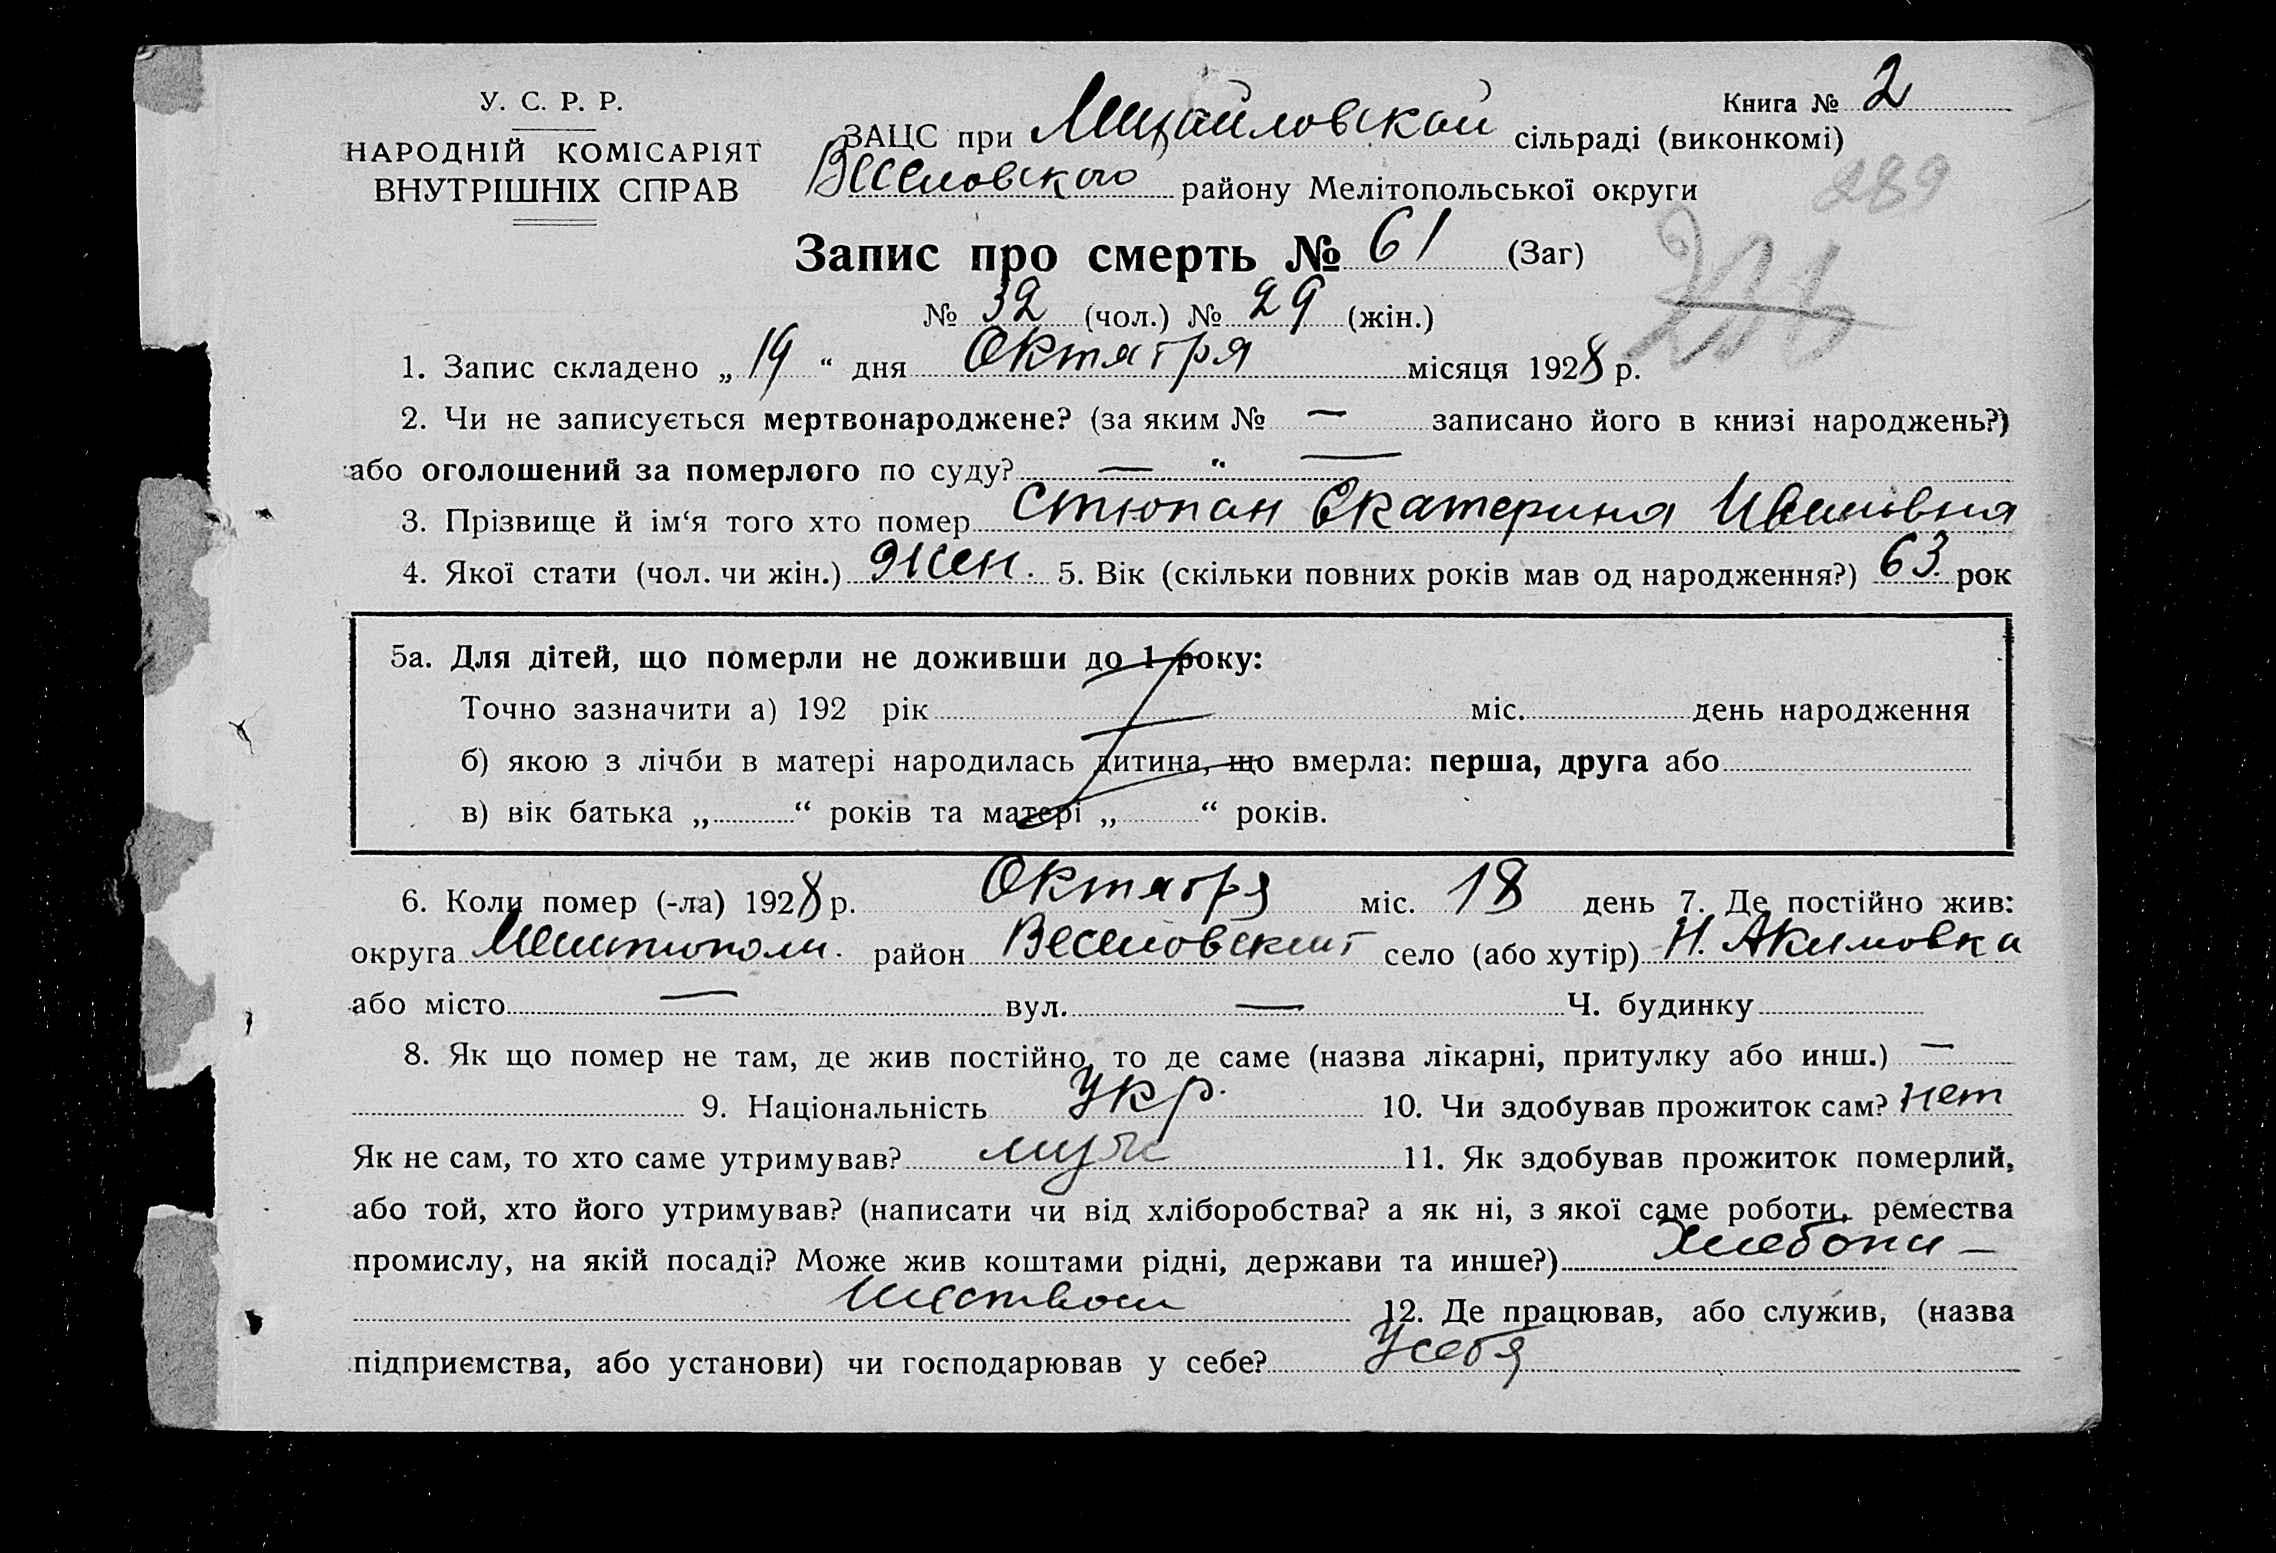 У. С. Р. Р.
НАРОДНІЙ КОМІСАРІЯТ
ВНУТРІШНІХ СПРАВ
Книга № 2
ЗАЦС при Михайловской сільраді (виконкомі)
Веселовского району Мелітопольської округи
289
Запис про смерть № 61 (Заг)
№ 32 (чол.) № 29 (жін.)
1. Запис складено „ 19 “ дня Октября місяця 1928 р.
2. Чи не записується мертвонароджене? (за яким № — записано його в книзі народжень?)
або оголошений за померлого по суду? — " —
3. Прізвище й ім‘я того хто помер Стюпан Екатерина Ивановна
4. Якої стати (чол. чи жін.) Жен. 5. Вік (скільки повних років мав од народження?) 63 рок
5а. Для дітей, що померли не доживши до 1 року:
Точно зазначити а) 192 рік міс. день народження
б) якою з лічби в матері народилась дитина, що вмерла: перша, друга або
в) вік батька „ “ років та матері „ “ років.
6. Коли помер (-ла) 1928 р. Октября міс. 18 день 7. Де постійно жив:
округа Мелитополи. район Веселовский село (або хутір) Н. Акимовка
або місто — вул. — Ч. будинку
8. Як що помер не там, де жив постійно, то де саме (назва лікарні, притулку або инш.) —
9. Національність Укр. 10. Чи здобував прожиток сам? нет
Як не сам, то хто саме утримував? муж 11. Як здобував прожиток померлий,
або той, хто його утримував? (написати чи від хліборобства? а як ні, з якої саме роботи, ремества
промислу, на якій посаді? Може жив коштами рідні, держави та инше?) Хлебопа—
шеством 12. Де працював, або служив, (назва
підприємства, або установи) чи господарював у себе? У себя